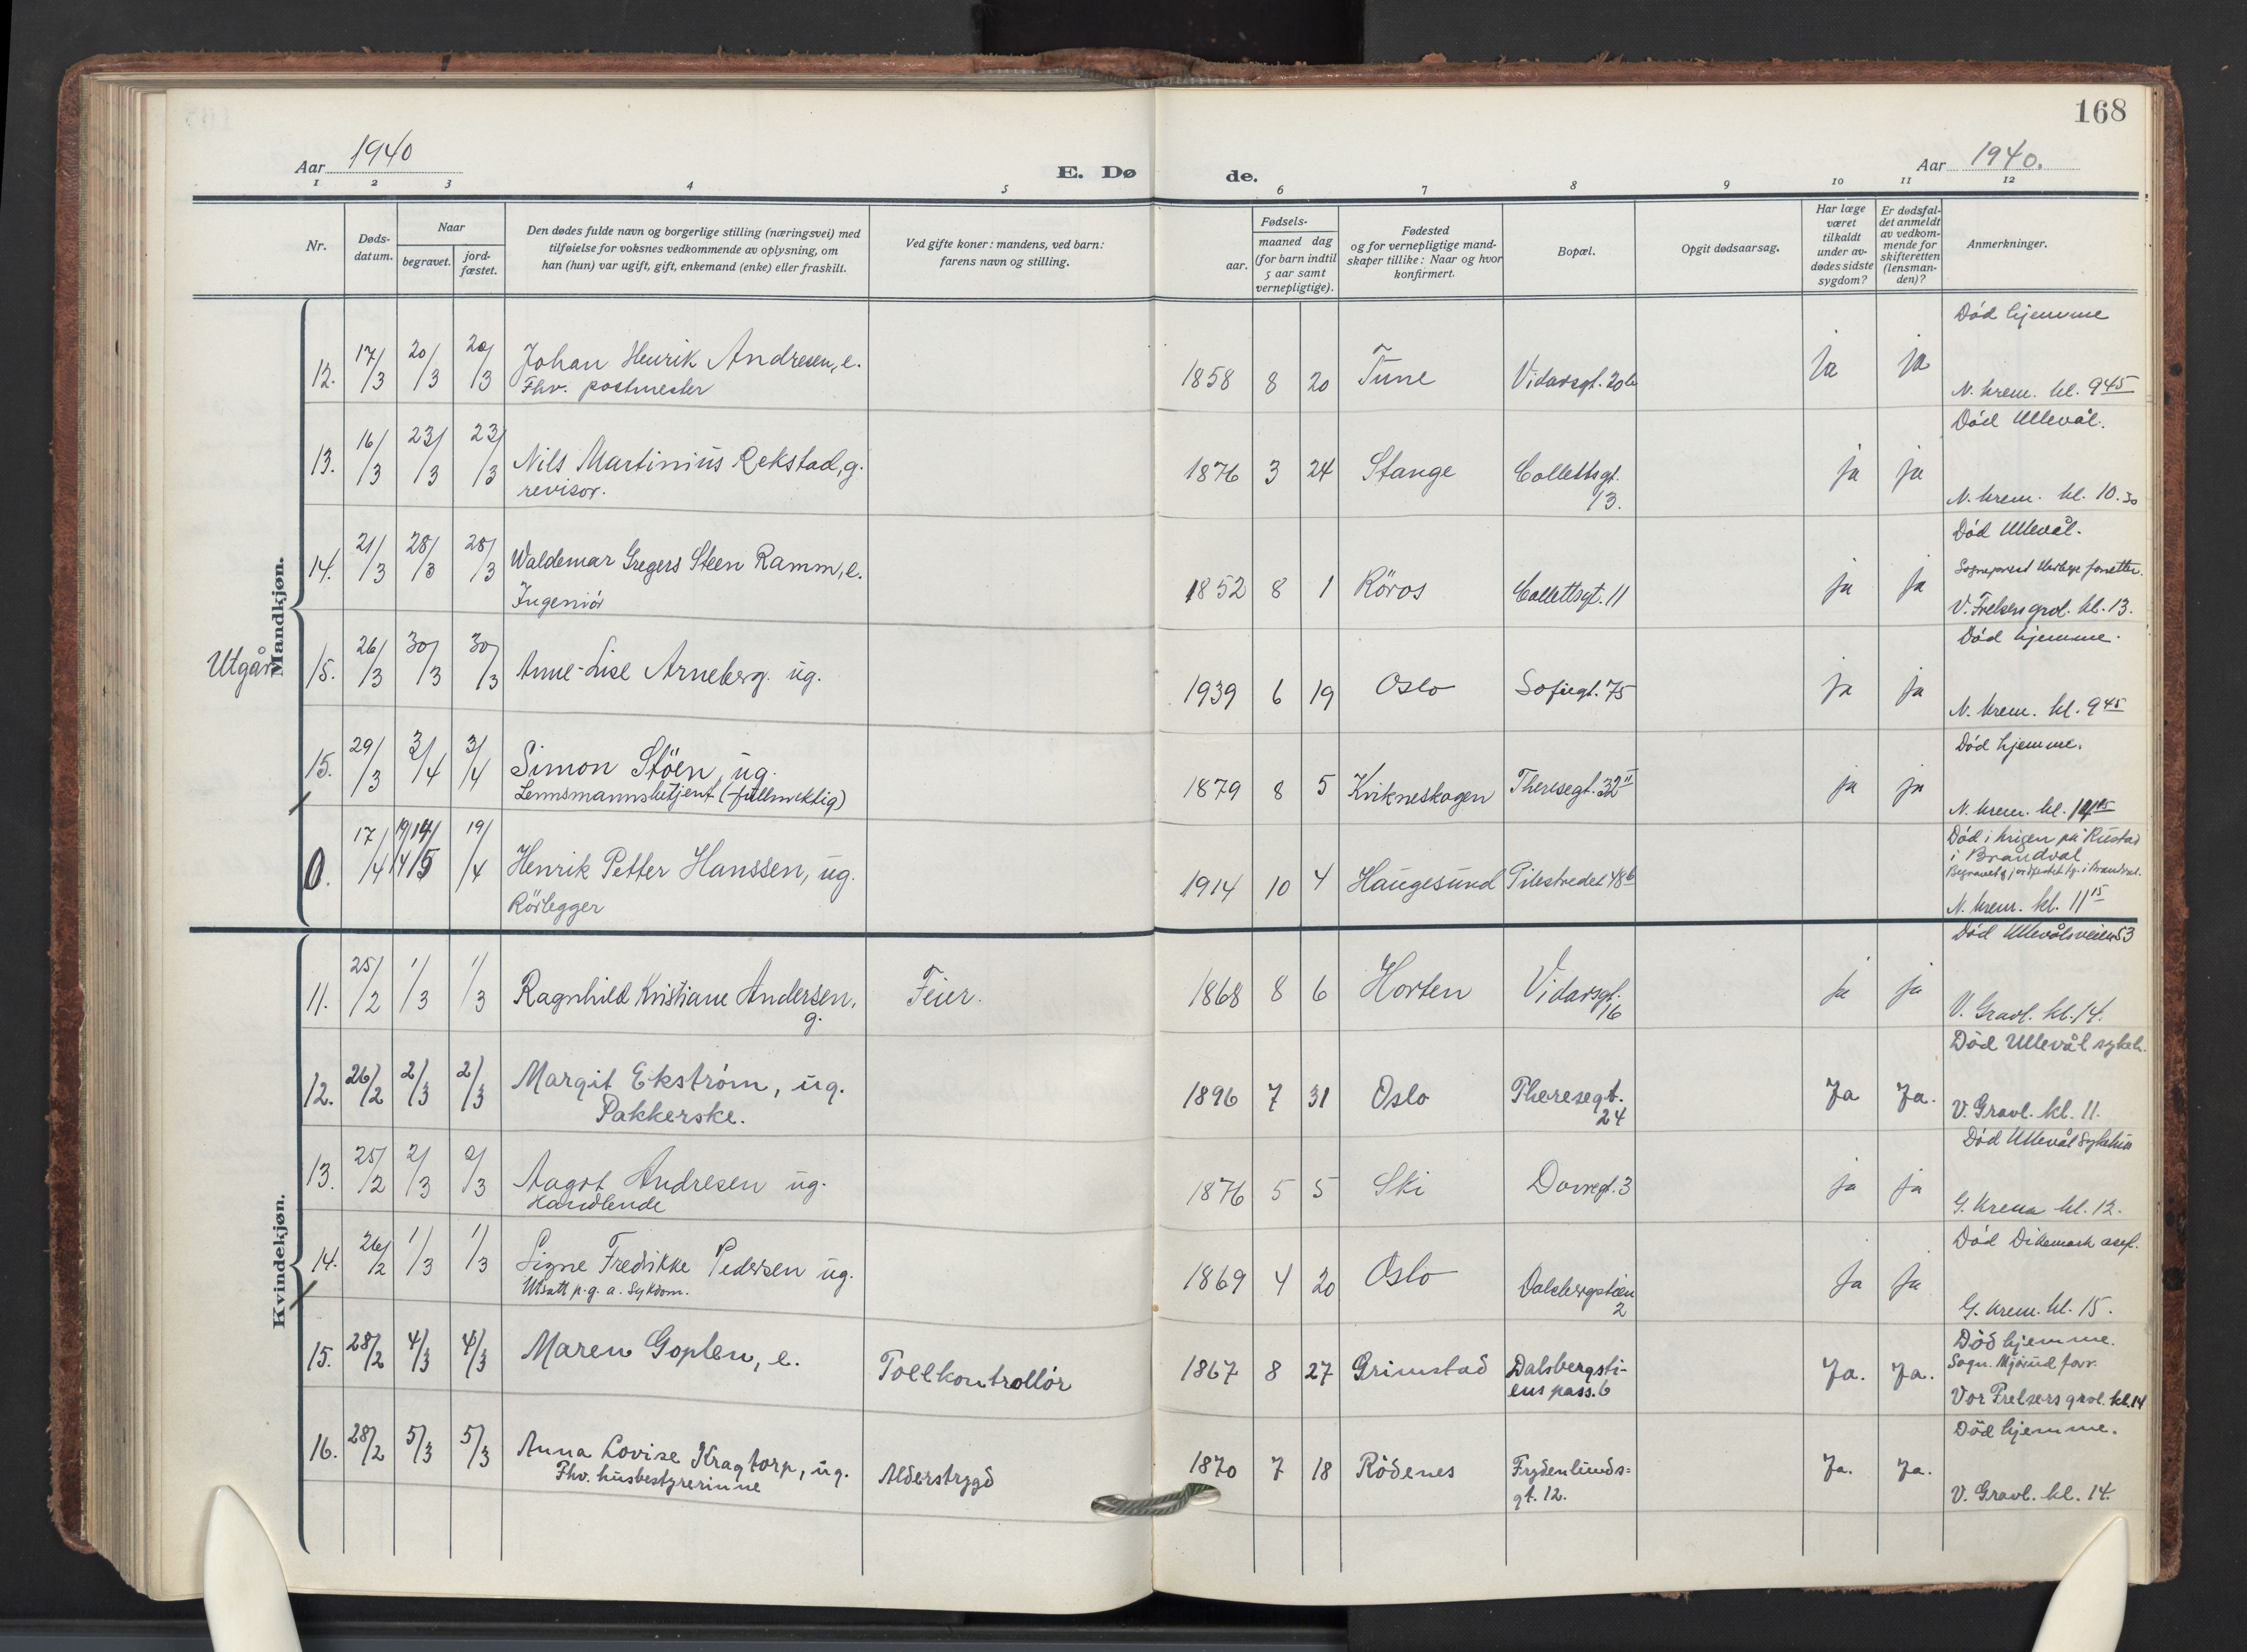 168
Aar 1940
E. Dø de.
Aar 1940.
1 2 3 4 5 6 7 8 9 10 11 12
Nr.
Døds-
datum.
Naar
begravet.
jord-
fæstet.
Den dødes fulde navn og borgerlige stilling (næringsvei) med
tilføielse for voksnes vedkommende av oplysning, om
han (hun) var ugift, gift, enkemand (enke) eller fraskilt.
Ved gifte koner: mandens, ved barn:
farens navn og stilling.
Fødsels-
aar.
maaned dag
(for barn indtil
5 aar samt
vernepligtige).
Fødested
og for vernepligtige mand-
skaper tillike: Naar og hvor
konfirmert.
Bopæl.
Opgit dødsaarsag.
Har læge
været
tilkaldt
under av-
dødes sidste
sygdom?
Er dødsfal-
det anmeldt
av vedkom-
mende for
skifteretten
(lensman-
den)?
Anmerkninger.
Mandkjøn.
Død hjemme
12. 17/3 20/3 20/3 Johan Henrik Andresen, e. 1858 8 20 Tune Vidarsgt. 20b ja ja
Fhv. postmester N. krem. kl. 9 45
Død Ullevål.
13. 16/3 23/3 23/3 Nils Martinius Rekstad, g. 1876 3 24 Stange Collettsgt. ja ja
revisor. 13. N. krem. kl. 10.30
Død Ullevål.
14. 21/3 28/3 28/3 Waldemar Gregers Steen Ramm, e. 1852 8 1 Röros Collettsgt. 11 ja ja
Sogneprest forretter.
Ingeniör V. Frelsers grvl. kl. 13.
Død hjemme.
Utgår 15. 26/3 30/3 30/3 Anne-Lise Arneberg. ug. 1939 6 19 Oslo Sofiegt. 75 ja ja
N. krem. kl. 9 45
Død hjemme.
15. 29/3 3/4 3/4 Simon Stöen, ug. 1879 8 5 Kvikneskogen Theresegt. 32 II ja ja
Lennsmannsbetjent (-fullmektig) N. krem. kl.
Død i krigen på Rustad
i Brandval
Begravet & jordfestet i Brandval.
0. 17/4 19/4 14/5 19/4 Henrik Petter Hanssen, ug. 1914 10 4 Haugesund Pilestredet 48b
Rörlegger N. krem. kl. 11 15
Kvindekjøn.
Død Ullevålsveien 53
11. 25/2 1/3 1/3 Ragnhild Kristiane Andersen, Feier. 1868 8 6 Horten Vidarsgt. ja ja
g. 16 V. Gravl. kl. 14.
Død Ullevål sykeh.
12. 26/2 2/3 2/3 Margit Ekström, ug. 1896 7 31 Oslo Theresegt. Ja Ja.
Pakkerske. 24 V. Gravl. kl. 11.
Död Ullevål Sykehus
13. 25/2 2/3 2/3 Aagot Andresen ug. 1876 5 5 Ski Dovregt. 3 ja ja
Handlende G. Krem kl. 12.
Død Dikemark asyl.
14. 26/2 1/3 1/3 Signe Fredrikke Pedersen ug. 1869 4 20 Oslo Dalsbergstien ja ja
Utsatt p.g.a. Sykdom. 2 G. krem. kl. 15.
Död hjemme.
15. 28/2 4/3 4/3 Maren Goplen, e. Tollkontrollör 1867 8 27 Grimstad Dalsbergsti- Ja. Ja.
Sogn. Mjörud forr.
ens pass. 6 Vor Frelsers grvl. kl. 14
Död hjemme.
16. 28/2 5/3 5/3 Anna Lovise Kragtorp, ug. Alderstrygd 1870 7 18 Rödenes Frydenlunds- Ja. Ja.
Fhv. husbestyrerinne gt. 12. V. Gravl. kl. 14.